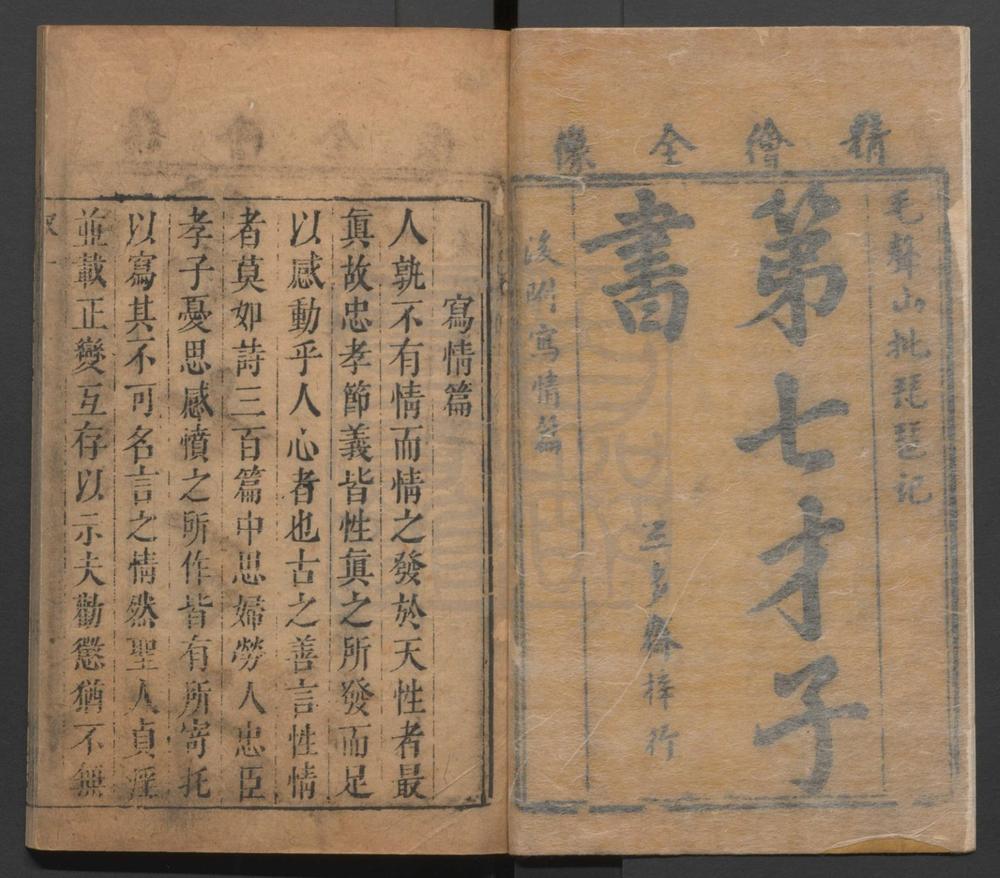 精繪全像
毛聲山批琵琶記
第七才子
書
三多齋梓行
後附寫情篇
寫情篇
人孰不有情而情之發於天性者最
眞故忠孝節義皆性眞之所發而足
以感動乎人心者也古之善言性情
者莫如詩三百篇中思婦勞人忠臣
孝子憂思感憤之所作皆有所寄托
以寫其不可名言之情然聖人貞淫
並載正變互存以示夫勸懲猶不無